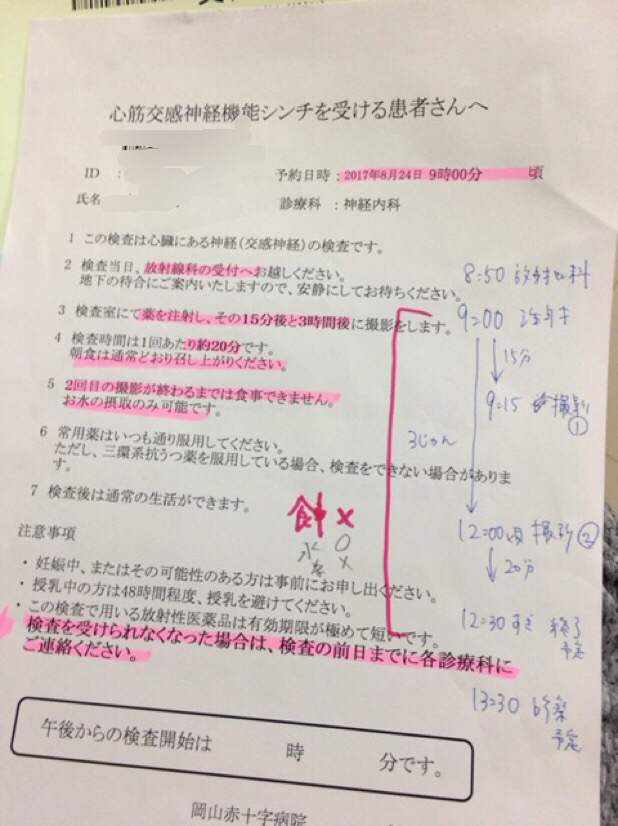 心筋交感神経機能シンチを受ける患者さんへ
ID :
予約日時 : 2017年8月24日 9時00分 頃
氏名
診療科 : 神経内科
1 この検査は心臓にある神経(交感神経)の検査です。
2 検査当日、放射線科の受付へお越しください。
地下の待合にご案内いたしますので、安静にしてお待ちください。
3 検査室にて薬を注射し、その15分後と3時間後に撮影をします。
4 検査時間は1回あたり約20分です。
朝食は通常どおり召し上がりください。
5 2回目の撮影が終わるまでは食事できません。
お水の摂取のみ可能です。
6 常用薬はいつも通り服用してください。
ただし、三環系抗うつ薬を服用している場合、検査をできない場合がありま
す。
7 検査後は通常の生活ができます。
食事 ×
水 ○
茶 ×
注意事項
・ 妊娠中、またはその可能性のある方は事前にお申し出ください。
・ 授乳中の方は48時間程度、授乳を避けてください。
・ この検査で用いる放射性医薬品は有効期限が極めて短いです。
検査を受けられなくなった場合は、検査の前日までに各診療科に
ご連絡ください。
午後からの検査開始は 時 分です。
岡山赤十字病院
8:50 放射線科
9:00 注射
15分
9:15 撮影
①
3じかん
12:00頃 撮影 ②
20分
12:30すぎ 終了
予定
13:30 診察
予定